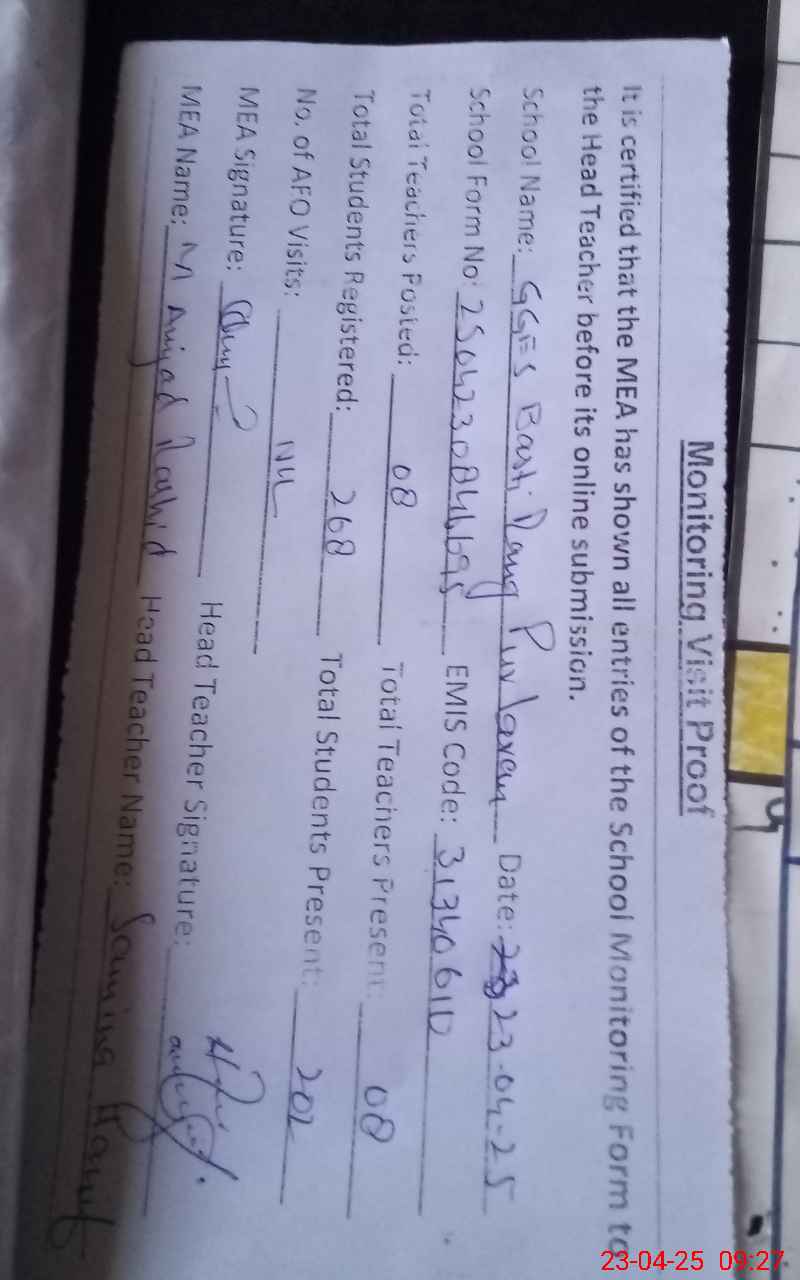 Monitoring Visit Proof
It is certified that the MEA has shown all entries of the School Monitoring Form to
the Head Teacher before its online submission.
School Name: GGES Basti Date: 23-04-25
School Form No: EMIS Code:
Total Teachers Posted: 08 Total Teachers Present: 08
Total Students Registered: 268 Total Students Present: 202
No. of AFO Visits: Nil
MEA Signature: Head Teacher Signature:
MEA Name: M Amjad Rashid Head Teacher Name: Samina Hanif
23-04-25 09:27